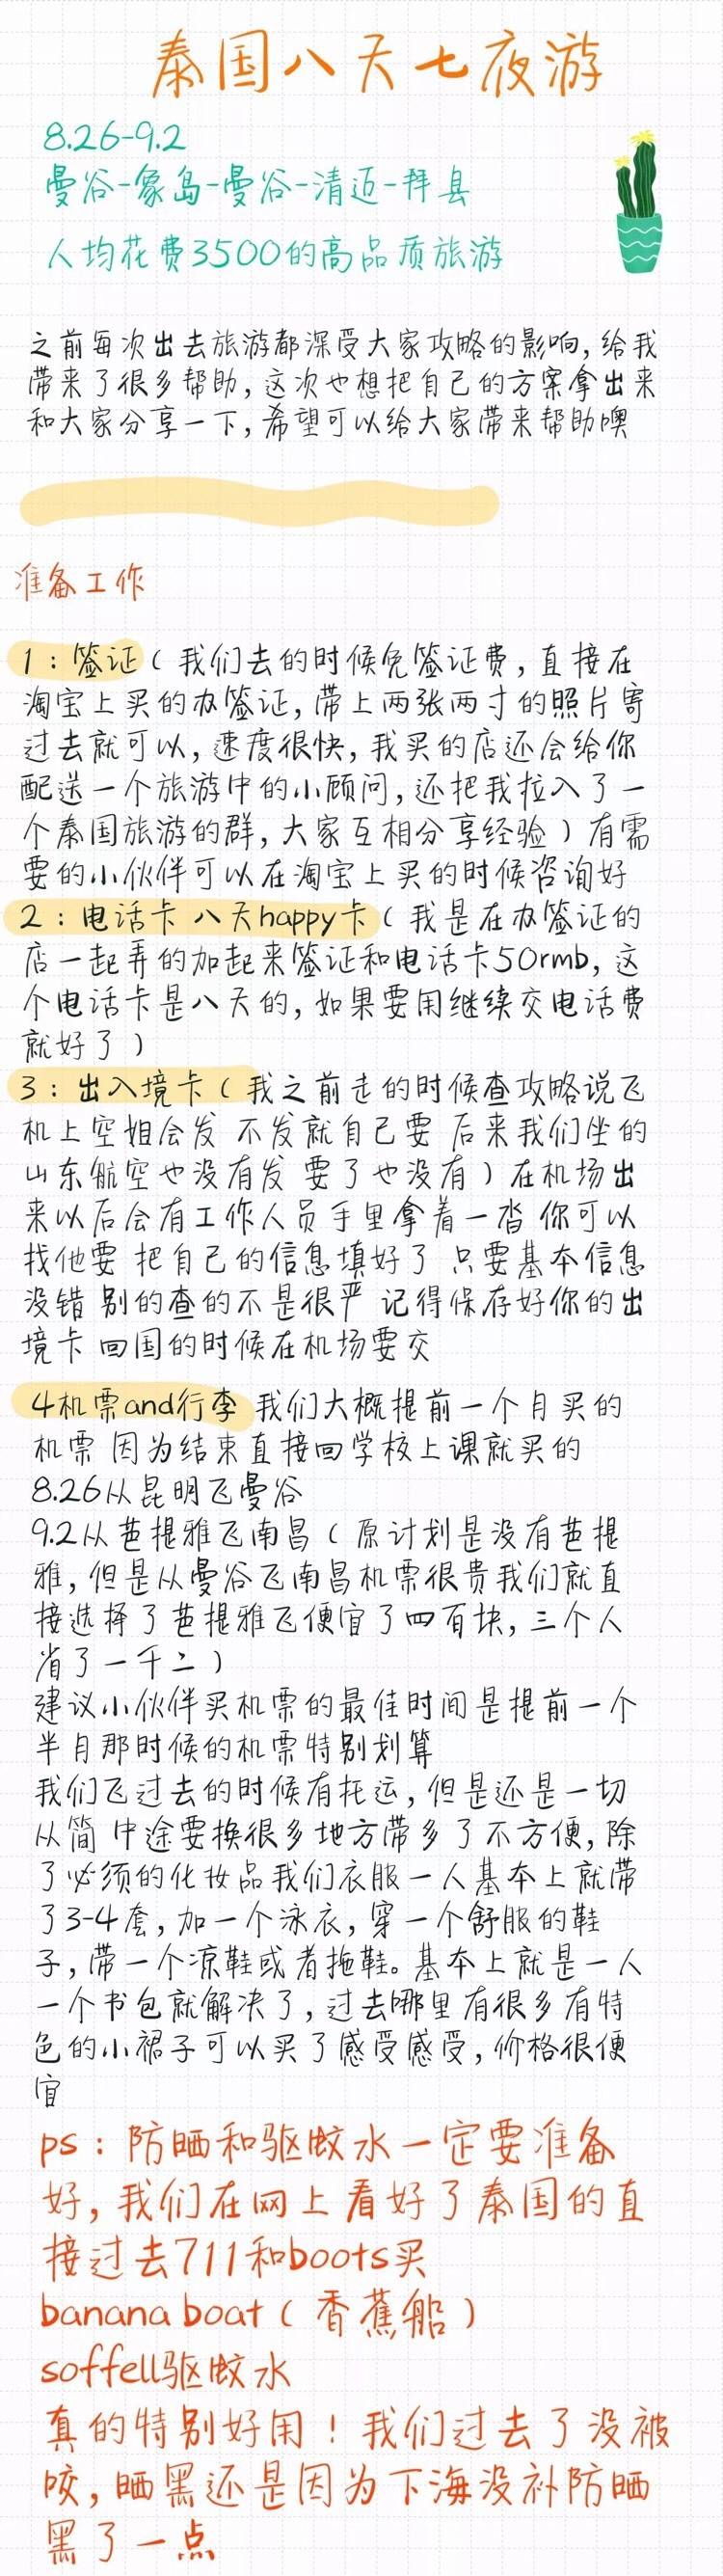 泰国八天七夜游
8.26-9.2
曼谷-象岛-曼谷-清迈-拜县
人均花费3500的高品质旅游
之前每次出去旅游都深受大家攻略的影响,给我
带来了很多帮助,这次也想把自己的方案拿出来
和大家分享一下,希望可以给大家带来帮助噢
准备工作
1:签证(我们去的时候免签证费,直接在
淘宝上买的办签证,带上两张两寸的照片寄
过去就可以,速度很快,我买的店还会给你
配送一个旅游中的小顾问,还把我拉入了一
个泰国旅游的群,大家互相分享经验)有需
要的小伙伴可以在淘宝上买的时候咨询好
2:电话卡 八天happy卡(我是在办签证的
店一起弄的加起来签证和电话卡50rmb,这
个电话卡是八天的,如果要用继续交电话费
就好了)
3:出入境卡(我之前走的时候查攻略说飞
机上空姐会发 不发就自己要 后来我们坐的
山东航空也没有发 要了也没有)在机场出
来以后会有工作人员手里拿着一沓 你可以
找他要 把自己的信息填好了 只要基本信息
没错 别的查的不是很严 记得保存好你的出
境卡 回国的时候在机场要交
4机票and行李 我们大概提前一个月买的
机票 因为结束直接回学校上课就买的
8.26从昆明飞曼谷
9.2从芭提雅飞南昌(原计划是没有芭提
雅,但是从曼谷飞南昌机票很贵我们就直
接选择了芭提雅飞便宜了四百块,三个人
省了一千二)
建议小伙伴买机票的最佳时间是提前一个
半月那时候的机票特别划算
我们飞过去的时候有托运,但是还是一切
从简 中途要换很多地方带多了不方便,除
了必须的化妆品我们衣服一人基本上就带
了3-4套,加一个泳衣,穿一个舒服的鞋
子,带一个凉鞋或者拖鞋。基本上就是一人
一个书包就解决了,过去哪里有很多有特
色的小裙子可以买了感受感受,价格很便
宜
ps:防晒和驱蚊水一定要准备
好,我们在网上看好了泰国的直
接过去711和boots买
banana boat(香蕉船)
soffell驱蚊水
真的特别好用!我们过去了没被
咬,晒黑还是因为下海没补防晒
黑了一点